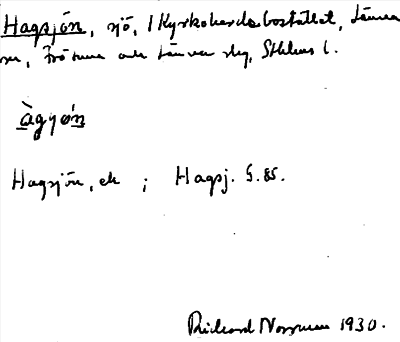 Hagsjön, sjö, 1 Kyrkoherdebostället, Länna
sn, Frötuna och Länna skg, Sthlms l.
àgɣøn
Hagsjön, ek ; Hagsj. G. 85.
Rickard 1930.